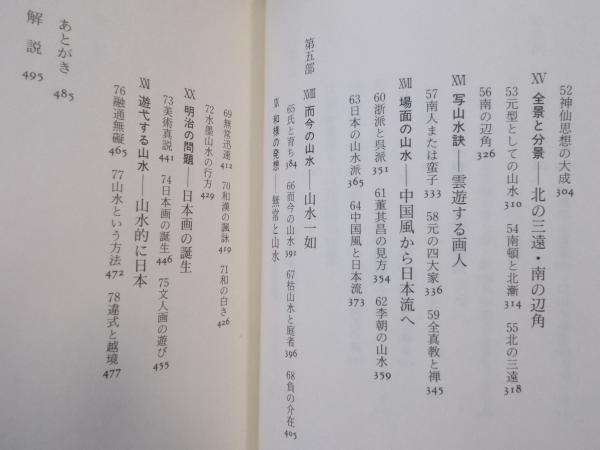 52神仙思想の大成 304
XV 全景と分景──北の三遠・南の辺角
53元型としての山水 310 54南頓と北漸 314 55北の三遠 318
56南の辺角 326
XVI 写山水訣──雲遊する画人
57南人または蛮子 333 58元の四大家 336 59全真教と禅 345
XVII 場面の山水──中国風から日本流へ
60浙派と呉派 351 61董其昌の見方 354 62李朝の山水 359
63日本の山水派 365 64中国風と日本流 373
第五部
XVIII 而今の山水──山水一如
65氏と育ち 384 66而今の山水 391 67枯山水と庭者 396 68負の介在 405
XIX 和様の発想──無常と山水
69無常迅速 412 70和漢の諷詠 419 71和の白さ 426
72水墨山水の行方 429
XX 明治の問題──日本画の誕生
73美術真説 441 74日本画の誕生 446 75文人画の遊び 455
XXI 遊弋する山水──山水的に日本
76融通無礙 465 77山水という方法 472 78違式と越境 477
あとがき 485
解説 495